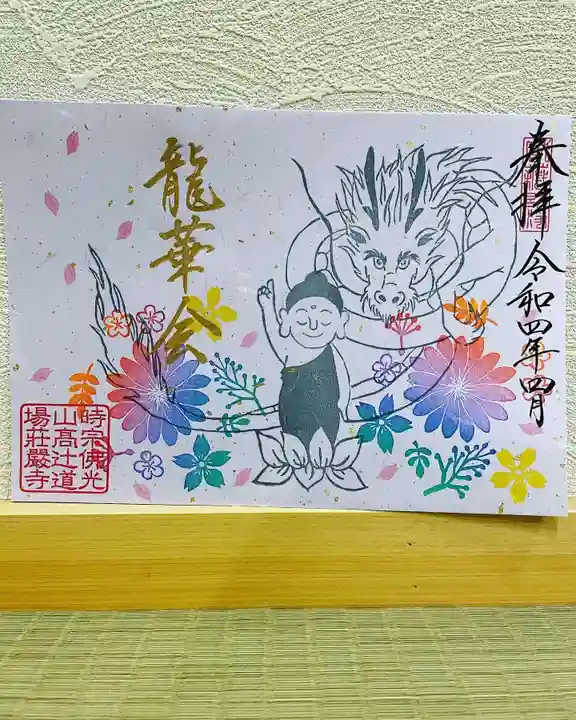 奉拝
令和四年四月
龍華会
時宗佛光
山高辻道
場荘嚴寺